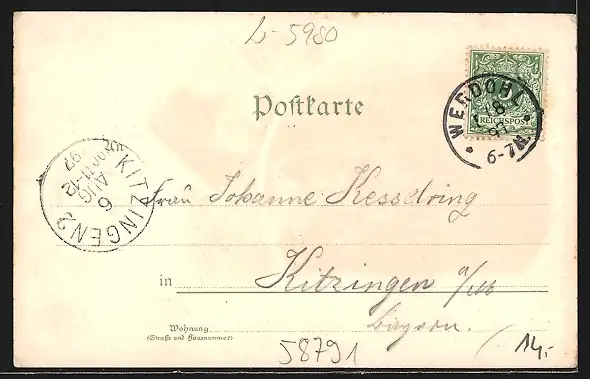 L-5980
Postkarte
REICHSPOST
WERDOHL
8
97
6-7N.
An
KITZINGEN 2
6
AUG
97
Frau Johanne Kesselring
in Kitzingen a/
Bayern.
Wohnung
(Straße und Hausnummer)
58791
14,-